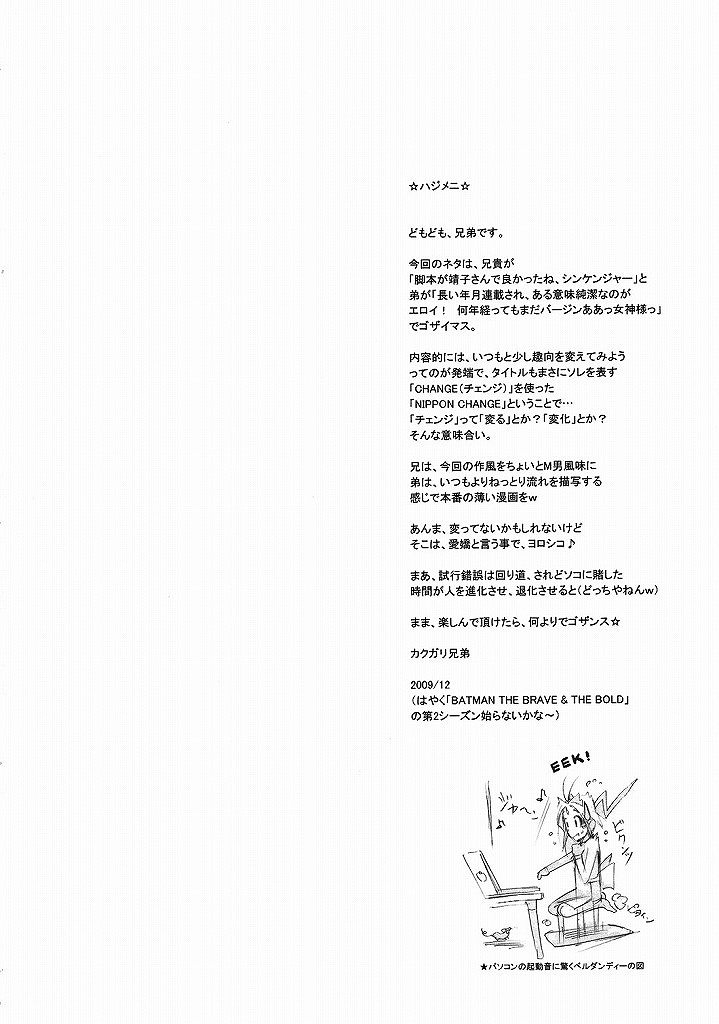 ☆ハジメニ☆
どもども、兄弟です。
今回のネタは、兄貴が
「脚本が靖子さんで良かったね、シンケンジャー」と
弟が「長い年月連載され、ある意味純潔なのが
エロイ！　何年経ってもまだバージンああっ女神様っ」
でゴザイマス。
内容的には、いつもと少し趣向を変えてみよう
ってのが発端で、タイトルもまさにソレを表す
「CHANGE(チェンジ)」を使った
「NIPPON CHANGE」ということで…
「チェンジ」って「変る」とか？「変化」とか？
そんな意味合い。
兄は、今回の作風をちょいとM男風味に
弟は、いつもよりねっとり流れを描写する
感じで本番の薄い漫画をｗ
あんま、変ってないかもしれないけど
そこは、愛嬌と言う事で、ヨロシコ♪
まあ、試行錯誤は回り道、されどソコに賭した
時間が人を進化させ、退化させると(どっちやねんｗ)
まま、楽しんで頂けたら、何よりでゴザンス☆
カクガリ兄弟
2009/12
(はやく「BATMAN THE BRAVE & THE BOLD」
の第2シーズン始らないかな～)
EEK!
ジャーン
ビクンッ
★パソコンの起動音に驚くベルダンディーの図